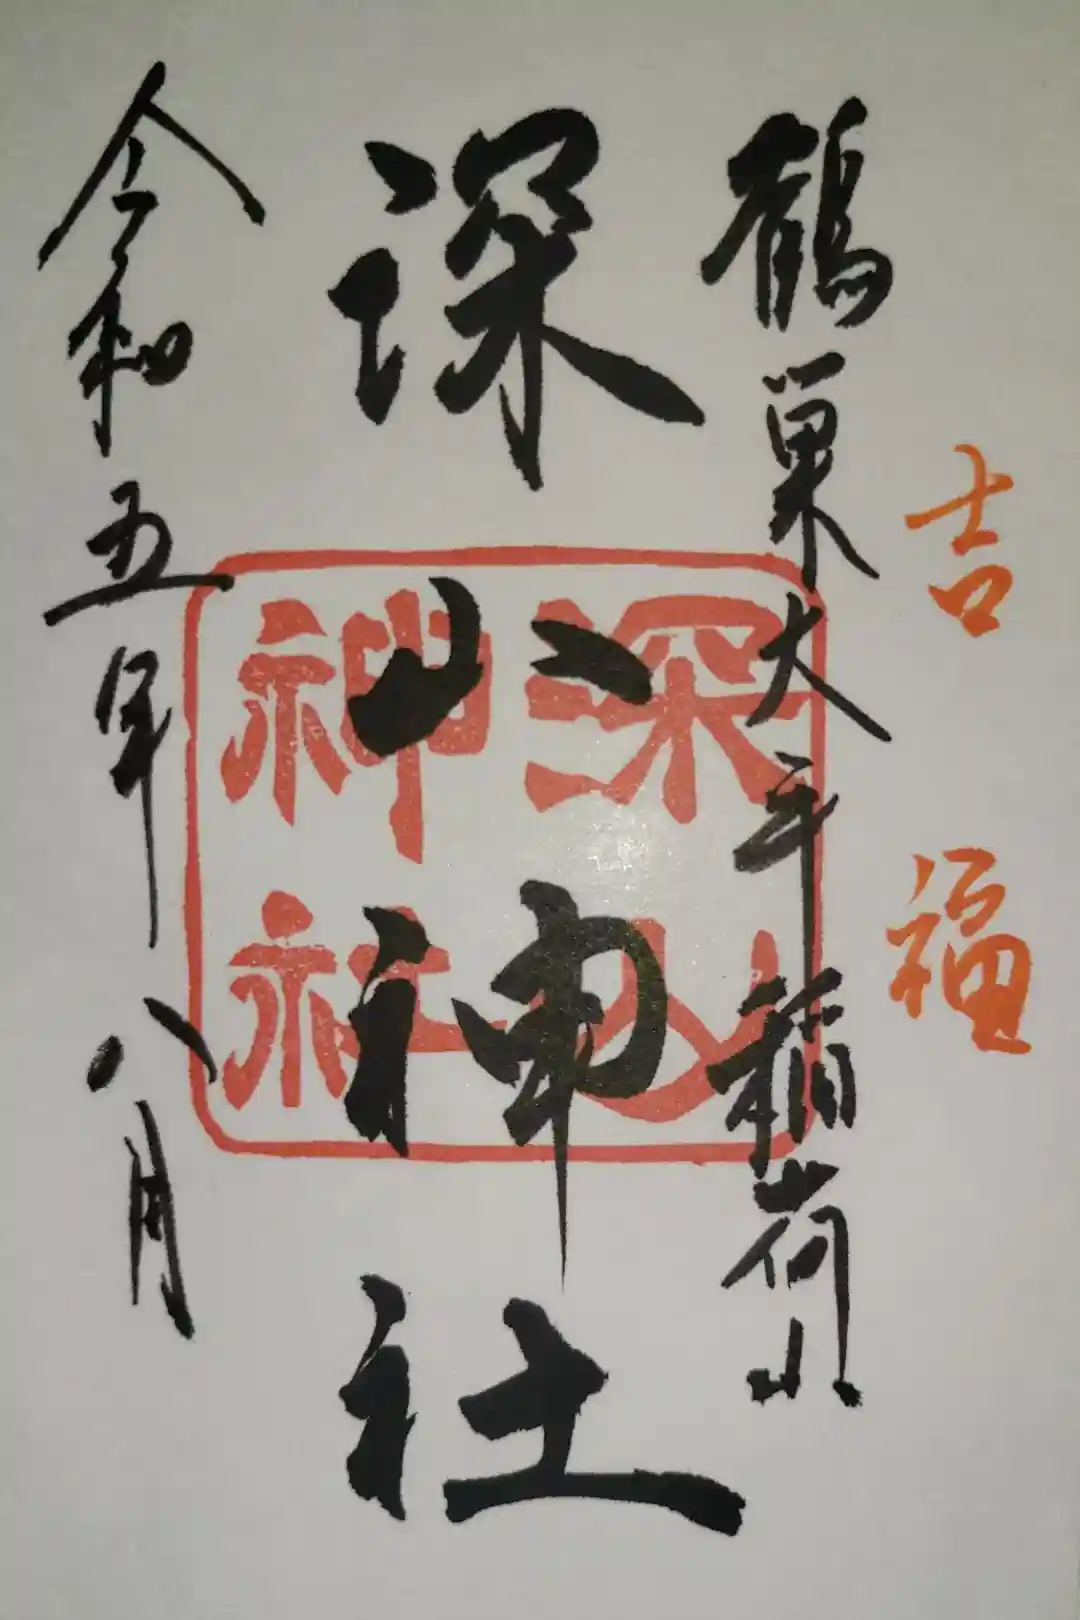 吉福
鶴巣大平稲荷山
深山神社
深山
神社
令和五年八月